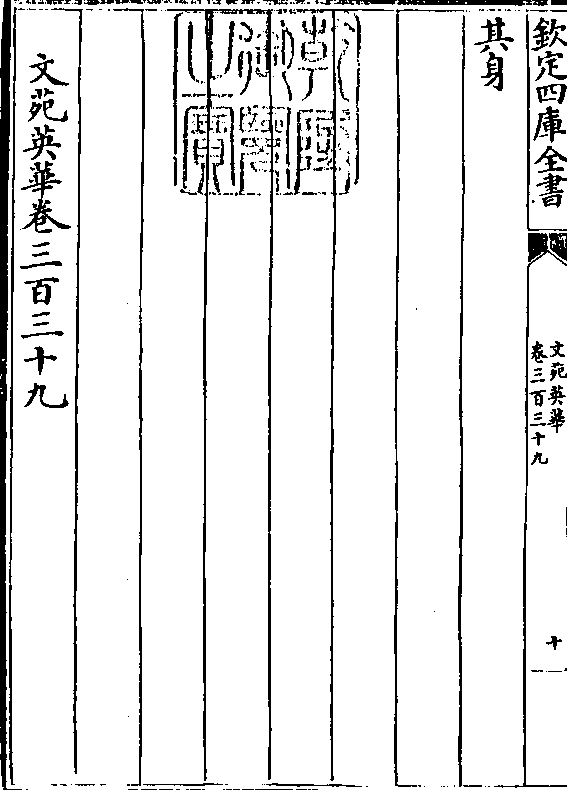 欽定四庫全書
文苑英華
卷三百三十九
十
其身
乾隆御覽之寶
文苑英華卷三百三十九